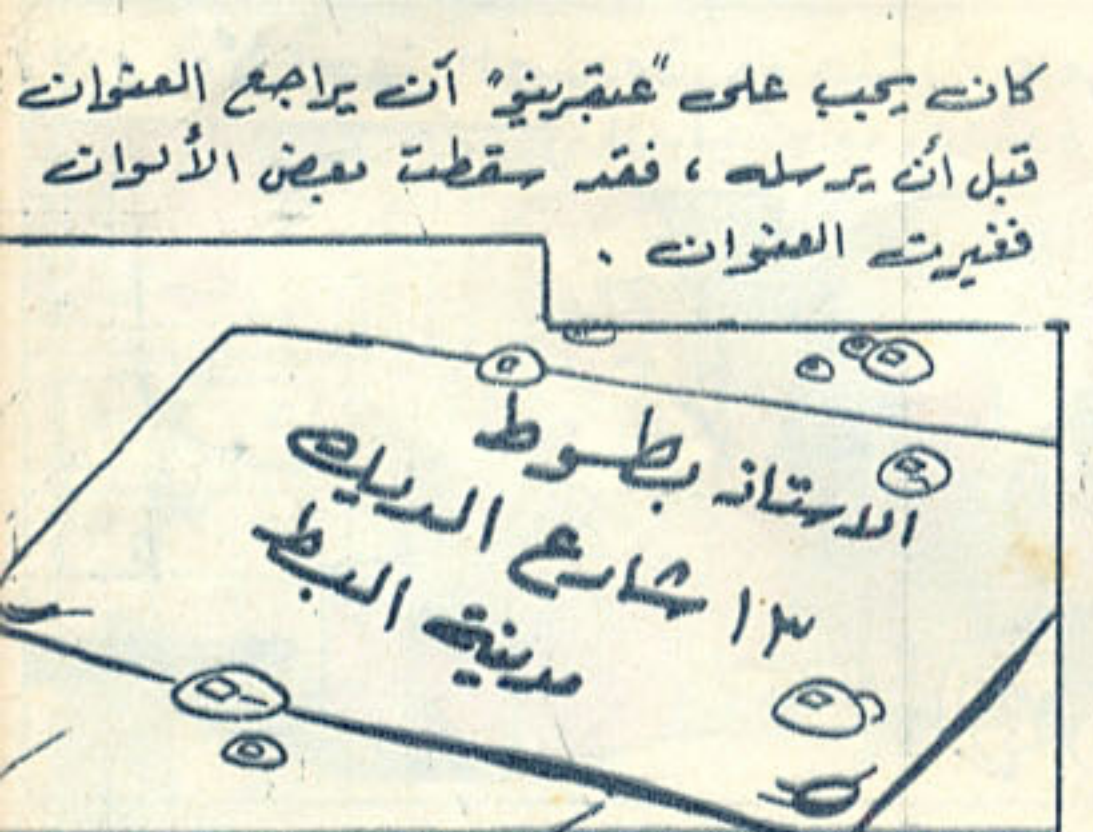 كان يجب على "عبقرينو" أن يراجع العنوان
قبل أن يرسله ، فقد سقطت بعض الألوان
فغيرت العنوان .
الاستاذ بطوط
١٣ شارع الديك
مدينة البط